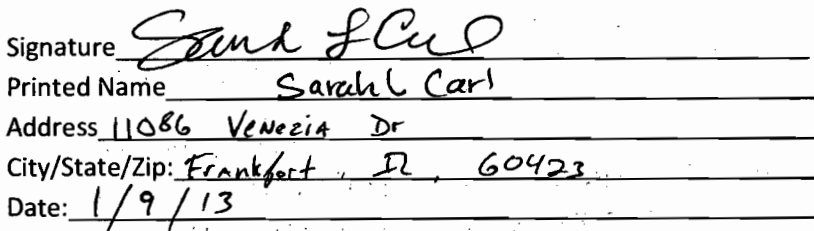 Signature Sarah L Carl
Printed Name Sarah L Carl
Address 11086 Venezia Dr
City/State/Zip: Frankfort, IL, 60423
Date: 1/9/13